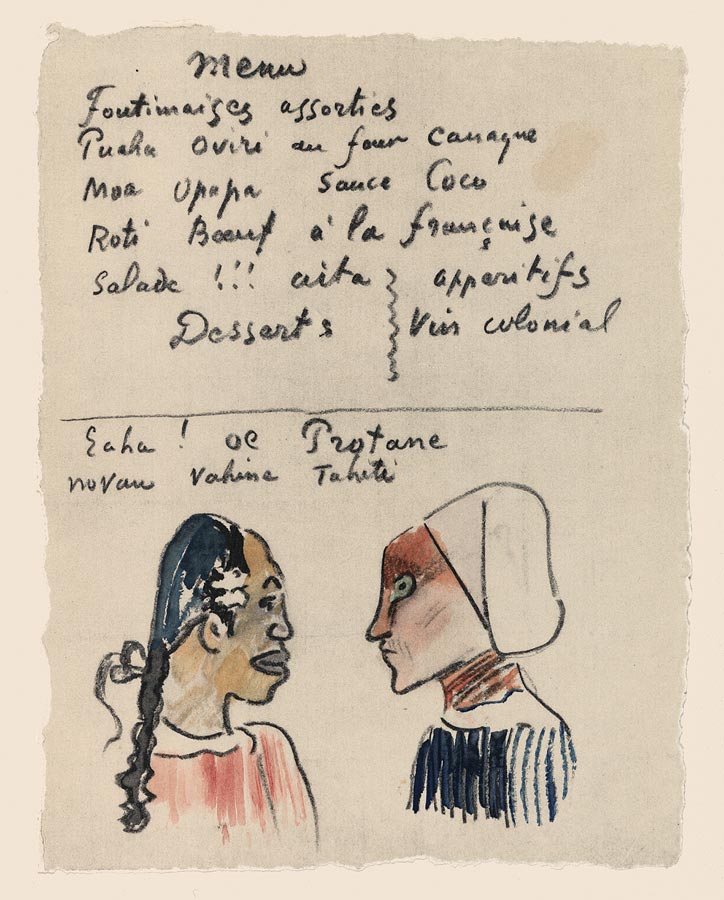 Menu
Foutimaises assorties
Puaha Oviri au four canaque
Moa Opapa Sauce Coco
Roti Bœuf à la française
Salade !!! aita apperitifs
Desserts Vin colonial
Eaha ! oe Protane
novau Vahine Tahiti